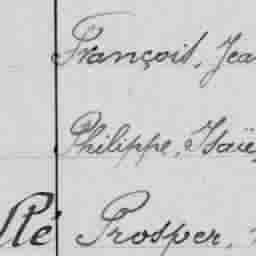 François, Jea
Philippe, Isaïe,
llé Prosper,